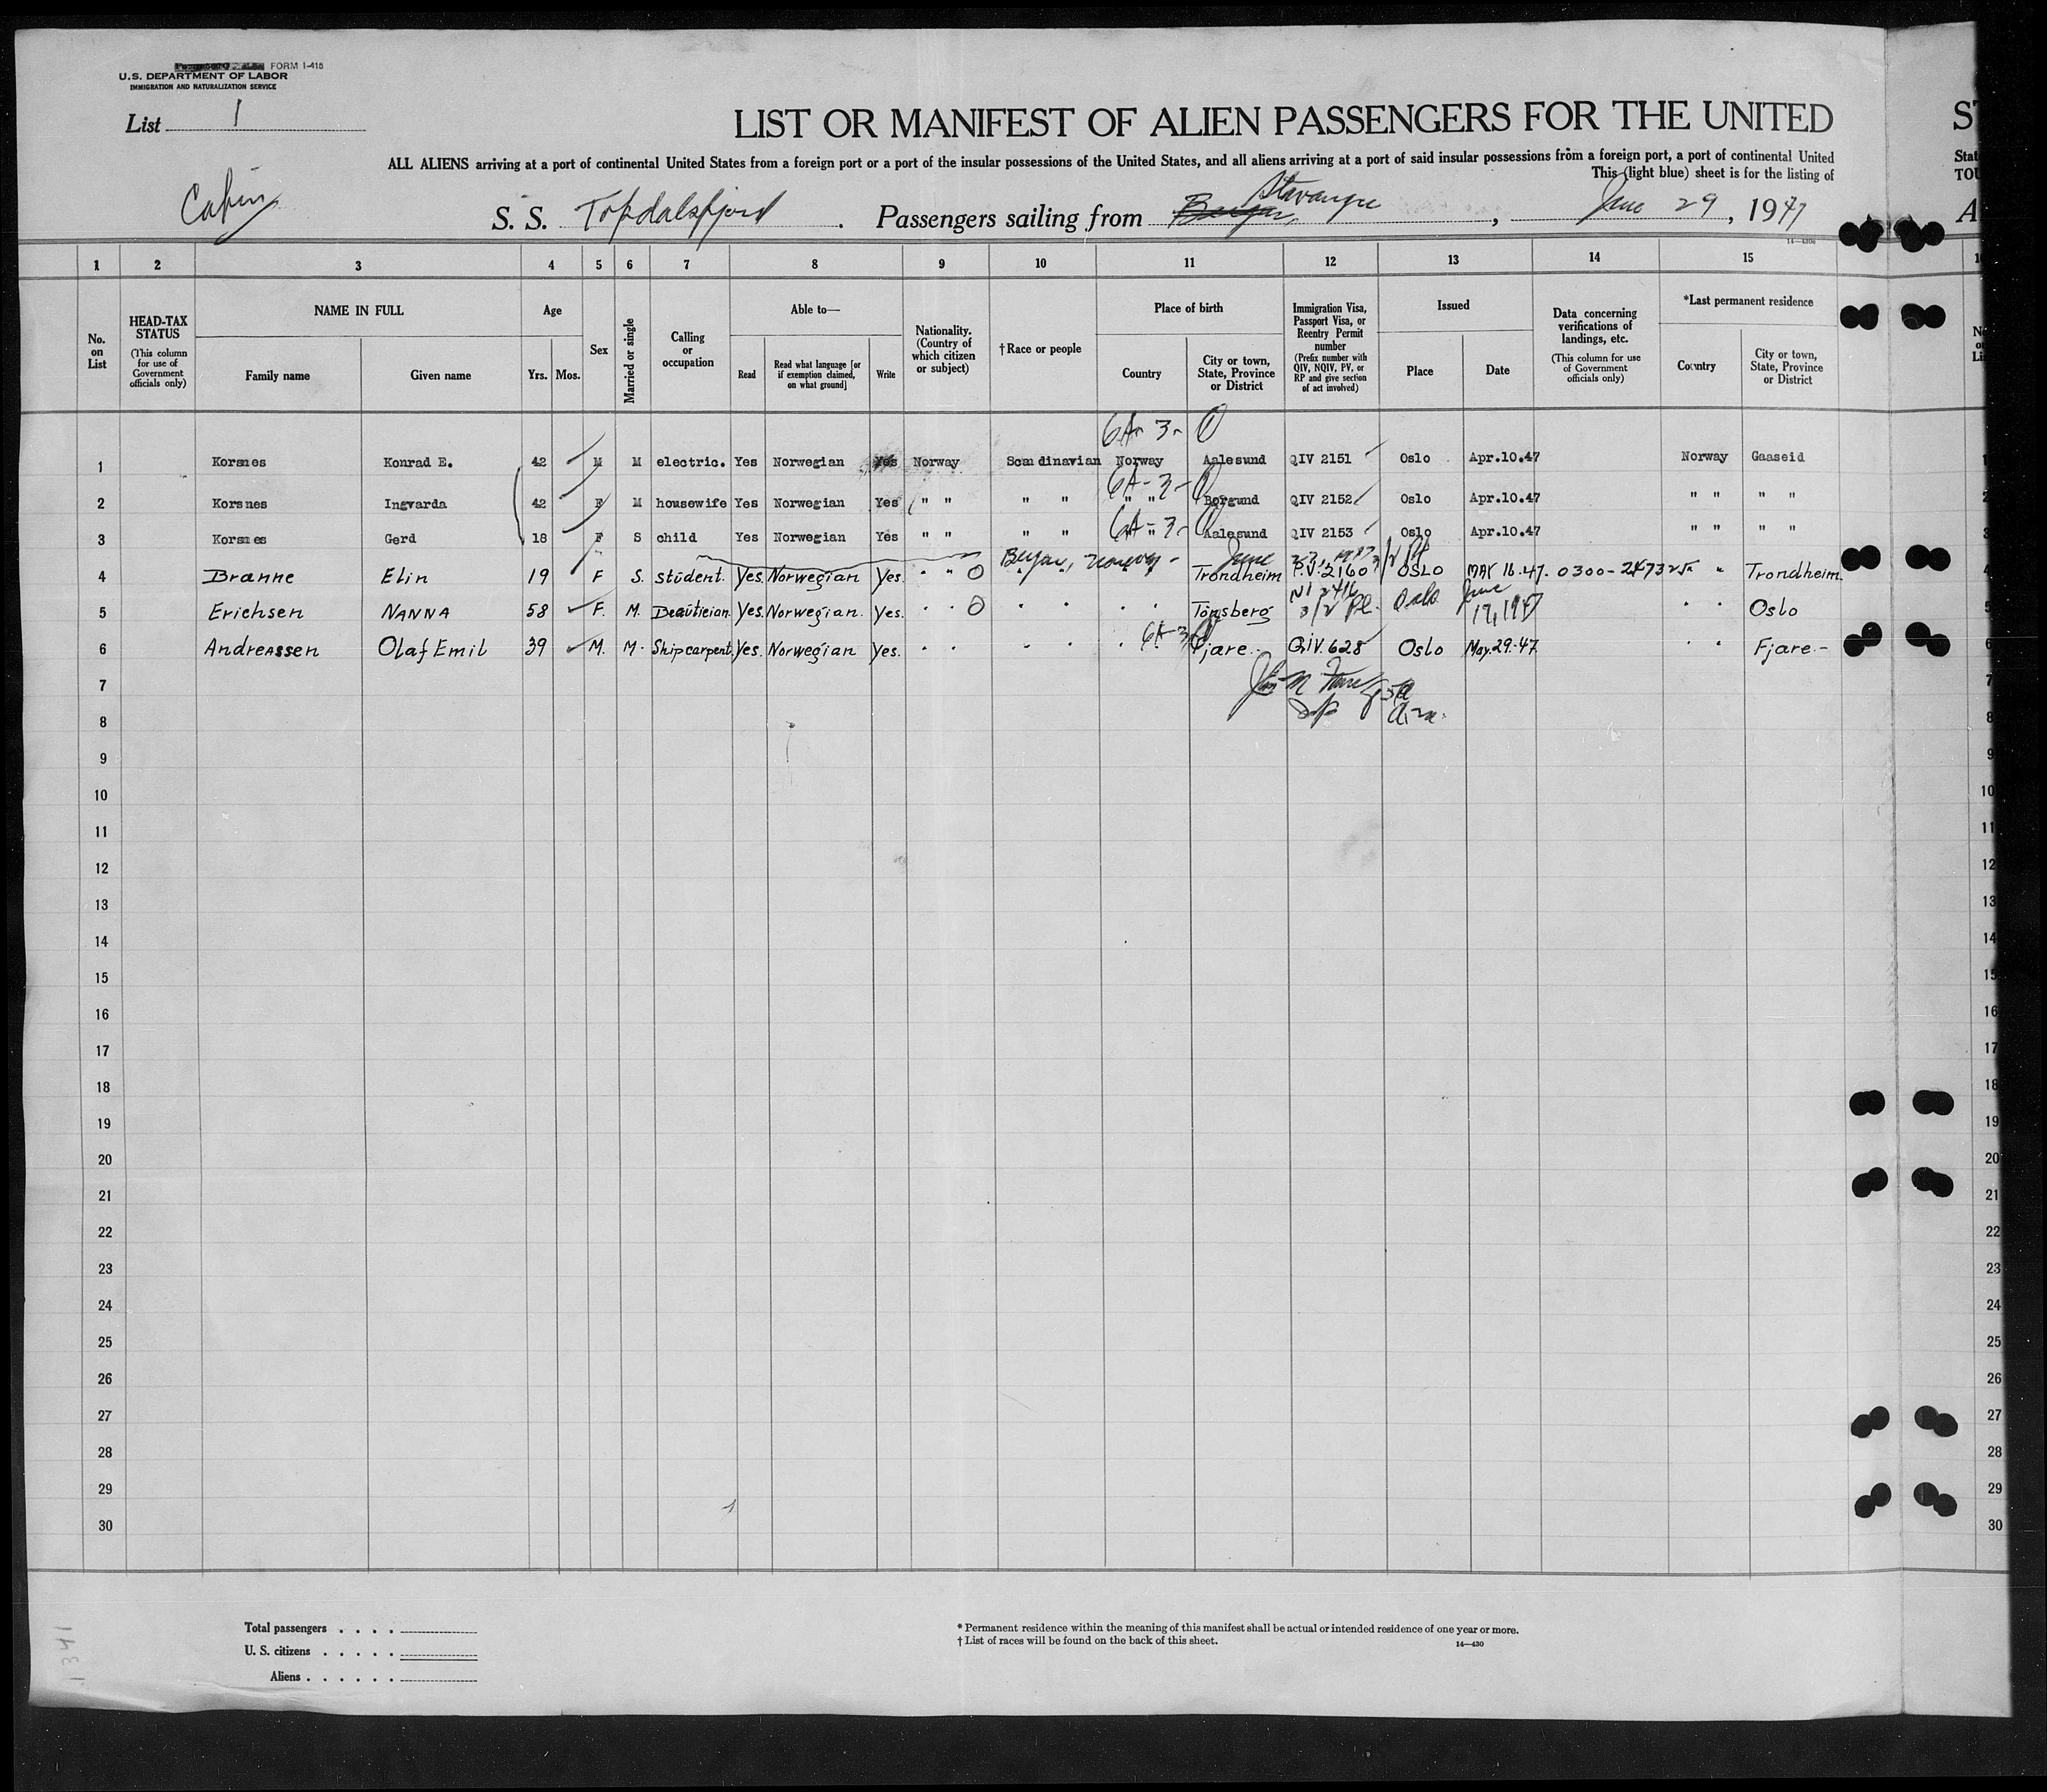 FORM I-415
U.S. DEPARTMENT OF LABOR
IMMIGRATION AND NATURALIZATION SERVICE
List 1
LIST OR MANIFEST OF ALIEN PASSENGERS FOR THE UNITED
ST
ALL ALIENS arriving at a port of continental United States from a foreign port or a port of the insular possessions of the United States, and all aliens arriving at a port of said insular possessions from a foreign port, a port of continental United
Stat
This (light blue) sheet is for the listing of
TOU
Cabin
Stavanger
S. S. Topdalsfjord. Passengers sailing from Bergen, , June 29, 1947
A
1 2 3 4 5 6 7 8 9 10 11 12 13 14 15
No. on List
HEAD-TAX STATUS (This column for use of Government officials only)
NAME IN FULL
Family name
Given name
Age
Yrs. Mos.
Sex
Married or single
Calling or occupation
Able to—
Read
Read what language [or if exemption claimed, on what ground]
Write
Nationality. (Country of which citizen or subject)
†Race or people
Place of birth
Country
City or town, State, Province or District
Immigration Visa, Passport Visa, or Reentry Permit number (Prefix number with QIV, NQIV, PV, or RP and give section of act involved)
Issued
Place
Date
Data concerning verifications of landings, etc. (This column for use of Government officials only)
*Last permanent residence
Country
City or town, State, Province or District
6A-3-
1 Korsnes Konrad E. 42 M M electric. Yes Norwegian Yes Norway Scandinavian Norway Aalesund QIV 2151 Oslo Apr.10.47 Norway Gaaseid
6A-3-
2 Korsnes Ingvarda 42 F M housewife Yes Norwegian Yes " " " " " " Borgund QIV 2152 Oslo Apr.10.47 " " " "
6A-3-
3 Korsnes Gerd 18 F S child Yes Norwegian Yes " " " " " Aalesund QIV 2153 Oslo Apr.10.47 " " " "
Bergen, Norway - June 27, 1947 3/2 Pl
4 Branne Elin 19 F S. student. Yes. Norwegian Yes. " " O " " " Trondheim P.V. 2160 OSLO MAY 16.47. 0300-247325 " Trondheim.
NI 2416 June
5 Erichsen NANNA 58 F. M. Beautieian. Yes. Norwegian. Yes. " " O " " " " Tönsberg 3/2 Pl. Oslo 17, 1947 " " Oslo
6A-3
6 Andreassen Olaf Emil 39 M. M. Shipcarpent. Yes. Norwegian Yes. " " " " " Fjare.- QIV. 628 Oslo May.29.47 " " Fjare.-
7
8
9
10
11
12
13
14
15
16
17
18
19
20
21
22
23
24
25
26
27
28
29
30
Total passengers . . . .
U. S. citizens . . . . .
Aliens . . . . . .
* Permanent residence within the meaning of this manifest shall be actual or intended residence of one year or more.
† List of races will be found on the back of this sheet.
14—430
1341